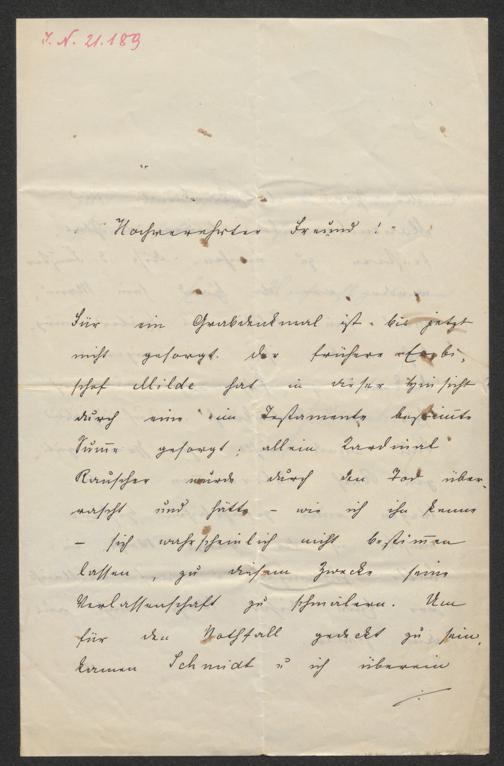 I. N. 21.189
Hochverehrter Freund!
Für ein Grabdenkmal ist bis jetzt
nicht gesorgt. Der frühere Erzbi-
schof Milde hat in dieser Hinsicht
durch eine im Testamente bestim̄te
Sum̄e gesorgt; allein Kardinal
Rauscher wurde durch den Tod über-
rascht und hätte – wie ich ihn kenne
– sich wahrscheinlich nicht bestim̄en
lassen, zu diesem Zwecke seine
Verlassenschaft zu schmälern. Um
für den Nothfall gedeckt zu sein,
kamen Schmidt u ich überein